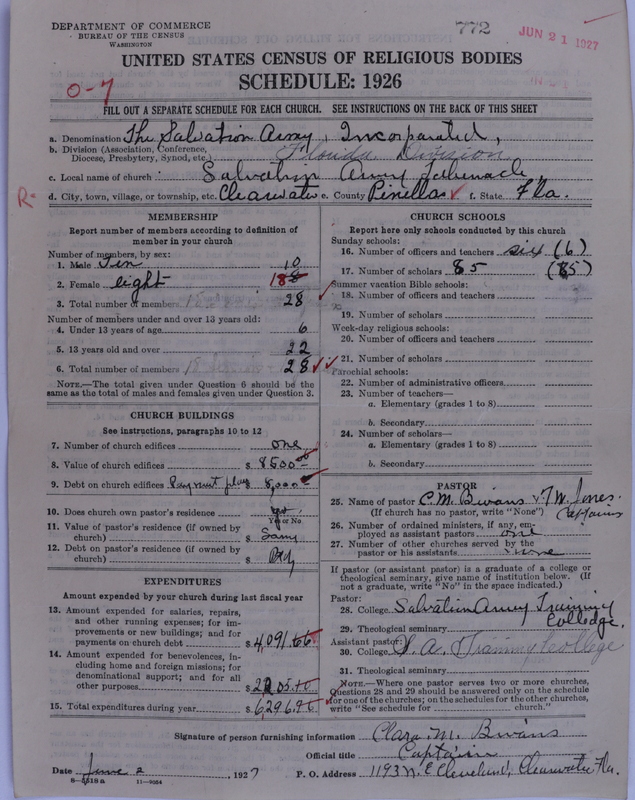 DEPARTMENT OF COMMERCE
BUREAU OF THE CENSUS
WASHINGTON
772
JUN 21 1927
UNITED STATES CENSUS OF RELIGIOUS BODIES
SCHEDULE: 1926
0-7
FILL OUT A SEPARATE SCHEDULE FOR EACH CHURCH. SEE INSTRUCTIONS ON THE BACK OF THIS SHEET
a. Denomination The Salvation Army, Incorporated,
b. Division (Association, Conference, Diocese, Presbytery, Synod, etc.) Florida Division
c. Local name of church Salvation Army
R-
d. City, town, village, or township, etc. Clearwater e. County Pinellas f. State Fla.
MEMBERSHIP
Report number of members according to definition of member in your church
Number of members, by sex:
1. Male Ten 10
2. Female eight 18
3. Total number of members 28
Number of members under and over 13 years old:
4. Under 13 years of age 6
5. 13 years old and over 22
6. Total number of members 28
NOTE.—The total given under Question 6 should be the same as the total of males and females given under Question 3.
CHURCH BUILDINGS
See instructions, paragraphs 10 to 12
7. Number of church edifices one
8. Value of church edifices $ 8500 00
9. Debt on church edifices Payment plan $ 8,000
10. Does church own pastor's residence
Yes or No
11. Value of pastor's residence (if owned by church) $
12. Debt on pastor's residence (if owned by church) $
EXPENDITURES
Amount expended by your church during last fiscal year
13. Amount expended for salaries, repairs, and other running expenses; for improvements or new buildings; and for payments on church debt $ 4,091.
14. Amount expended for benevolences, including home and foreign missions; for denominational support; and for all other purposes $
15. Total expenditures during year $
CHURCH SCHOOLS
Report here only schools conducted by this church
Sunday schools:
16. Number of officers and teachers six (6)
17. Number of scholars 85 (85)
Summer vacation Bible schools:
18. Number of officers and teachers
19. Number of scholars
Week-day religious schools:
20. Number of officers and teachers
21. Number of scholars
Parochial schools:
22. Number of administrative officers
23. Number of teachers—
a. Elementary (grades 1 to 8)
b. Secondary
24. Number of scholars—
a. Elementary (grades 1 to 8)
b. Secondary
PASTOR
25. Name of pastor C. M. Bivans & T. W. Jones
(If church has no pastor, write "None") Captains
26. Number of ordained ministers, if any, employed as assistant pastors one
27. Number of other churches served by the pastor or his assistants none
If pastor (or assistant pastor) is a graduate of a college or theological seminary, give name of institution below. (If not a graduate, write "No" in the space indicated.)
Pastor:
28. College Salvation Army Training Colledge.
29. Theological seminary
Assistant pastor:
30. College S. A. Training College
31. Theological seminary
NOTE.—Where one pastor serves two or more churches, Questions 28 and 29 should be answered only on the schedule for one of the churches; on the schedules for the other churches, write "See schedule for church."
Signature of person furnishing information Clara M. Bivans
Official title Captain
Date June 2, 1927 P. O. Address 1193 N. E. Cleveland, Clearwater Fla.
8-5318a 11-9024